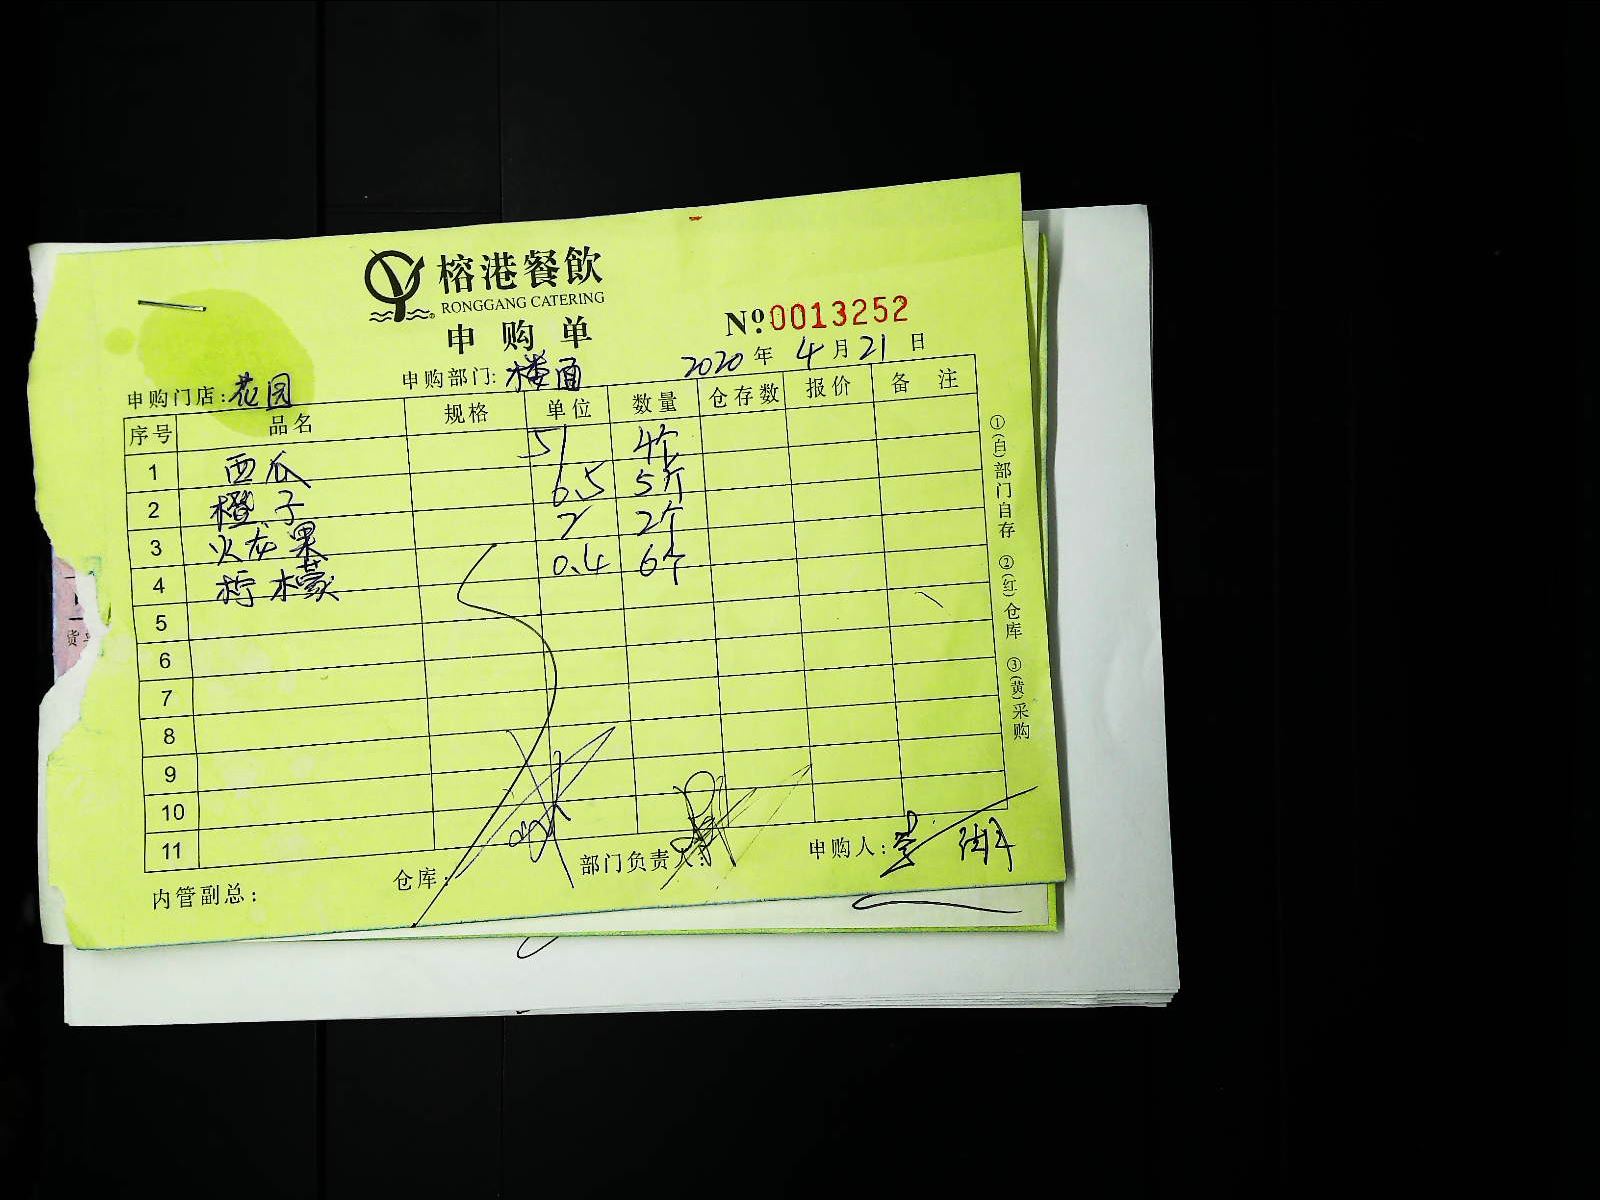 榕港餐飲
RONGGANG CATERING
申购单
№ 0013252
2020年4月21日
申购门店:花园 申购部门:楼面
序号 品名 规格 单位 数量 仓存数 报价 备注
1 西瓜 51 4个
2 橙子 6.5 5个
3 火龙果 2 2个
4 柠檬 0.4 6个
5
6
7
8
9
10
11
内管副总: 仓库: 部门负责人: 申购人:
①(白)部门自存 ②(红)仓库 ③(黄)采购
货